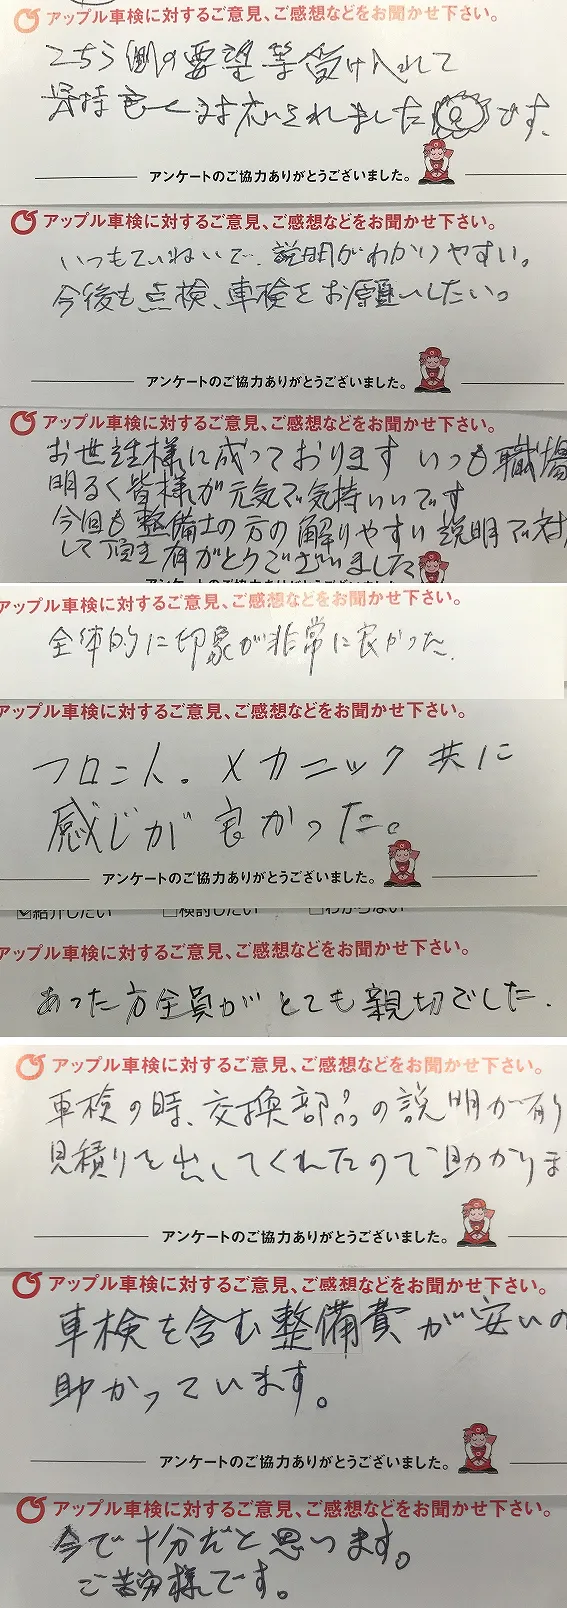 アップル車検に対するご意見、ご感想などをお聞かせ下さい。
こちら側の要望等受け入れて
対応されました です。
アンケートのご協力ありがとうございました。
アップル車検に対するご意見、ご感想などをお聞かせ下さい。
いつもていねいで、説明がわかりやすい。
今後も点検、車検をお願いしたい。
アンケートのご協力ありがとうございました。
アップル車検に対するご意見、ご感想などをお聞かせ下さい。
お世話様に成っております いつも職場
明るく皆様が元気で気持いいです
今回も整備士の方の解りやすい説明で対
して頂き有がとうございました
アンケートのご協力ありがとうございました
アップル車検に対するご意見、ご感想などをお聞かせ下さい。
全体的に印象が非常に良かった.
アップル車検に対するご意見、ご感想などをお聞かせ下さい。
フロント。メカニック共に
感じが良かった。
アンケートのご協力ありがとうございました。
紹介したい 検討したい わからない
アップル車検に対するご意見、ご感想などをお聞かせ下さい。
あった方全員がとても親切でした.
アップル車検に対するご意見、ご感想などをお聞かせ下さい。
車検の時、交換部品の説明が有り
見積りを出してくれたので助かりま
アンケートのご協力ありがとうございました。
アップル車検に対するご意見、ご感想などをお聞かせ下さい。
車検を含む整備費が安いの
助かっています。
アンケートのご協力ありがとうございました。
アップル車検に対するご意見、ご感想などをお聞かせ下さい。
今で十分だと思います。
ご苦労様です。